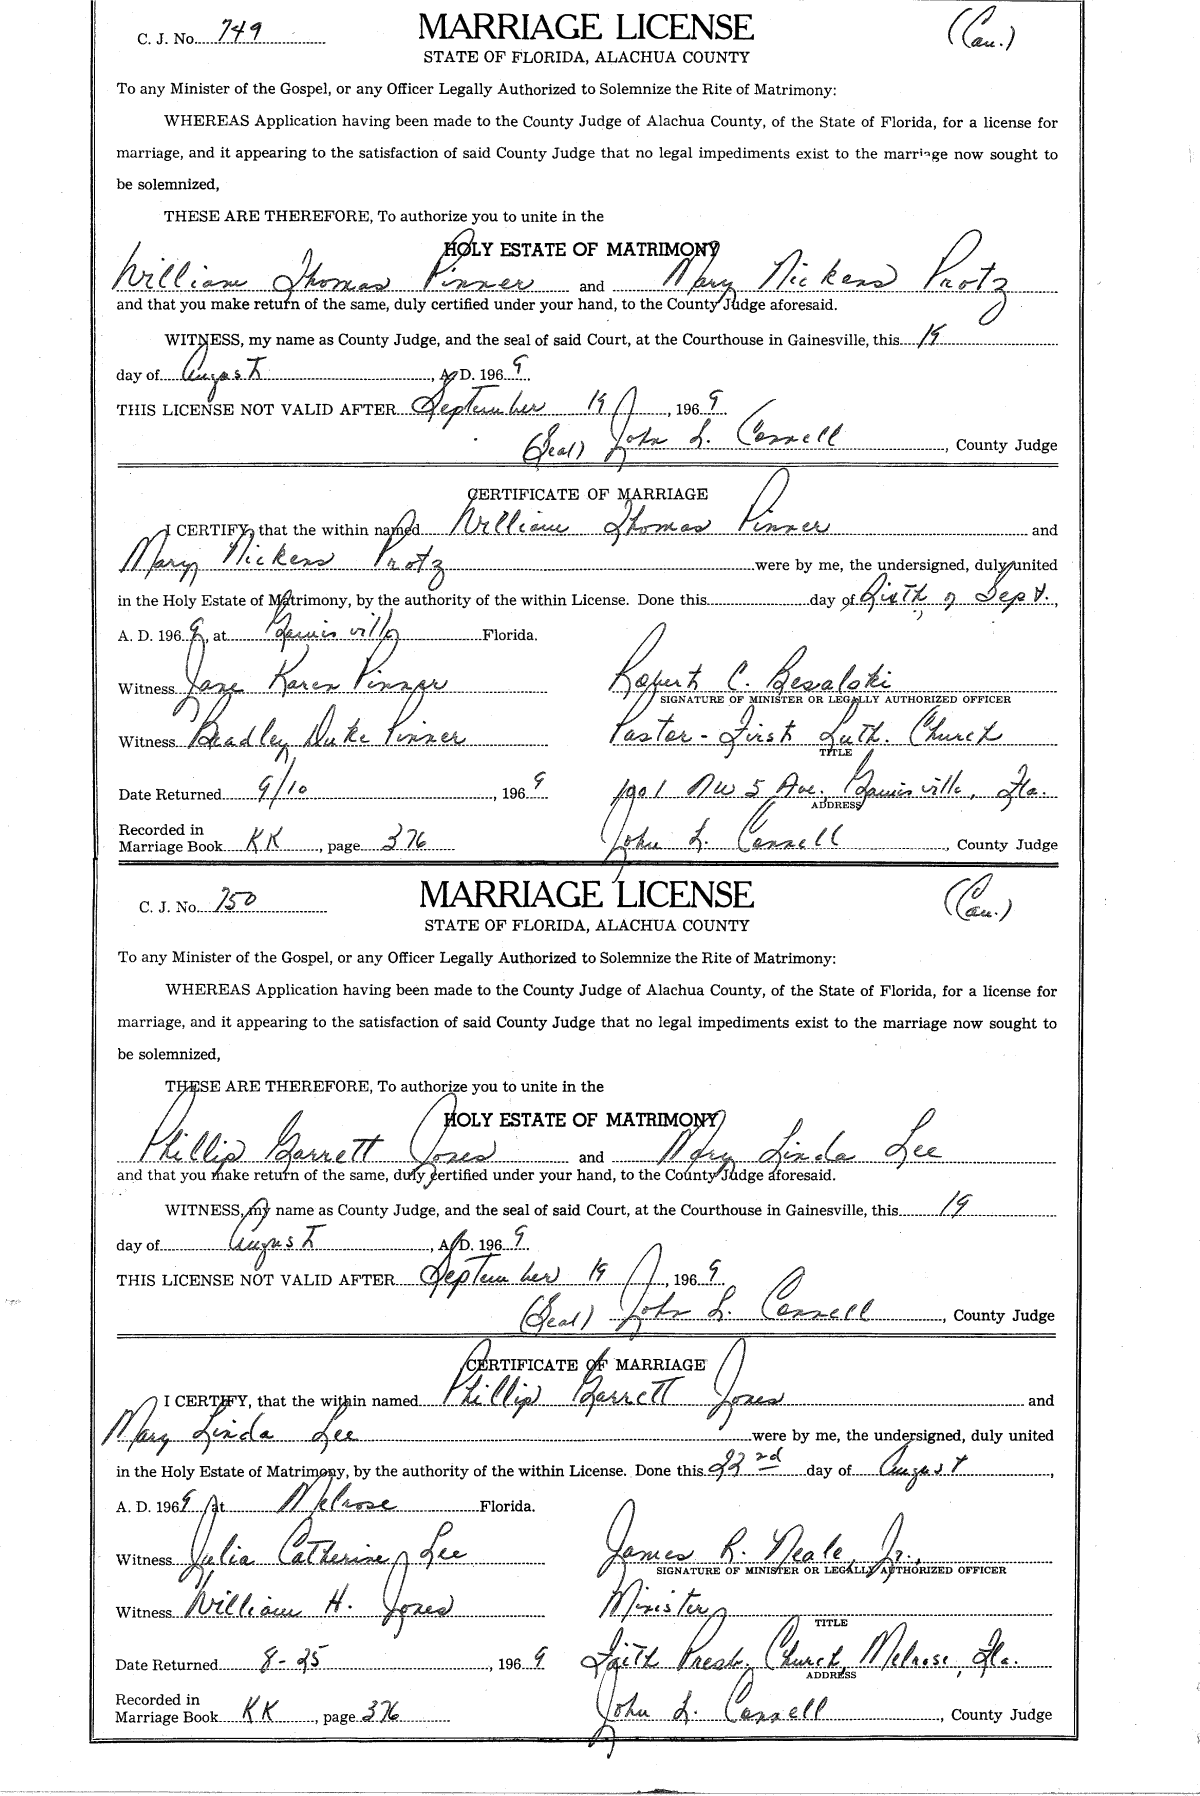 C. J. No. 749
MARRIAGE LICENSE
(Cau.)
STATE OF FLORIDA, ALACHUA COUNTY
To any Minister of the Gospel, or any Officer Legally Authorized to Solemnize the Rite of Matrimony:
WHEREAS Application having been made to the County Judge of Alachua County, of the State of Florida, for a license for
marriage, and it appearing to the satisfaction of said County Judge that no legal impediments exist to the marriage now sought to
be solemnized,
THESE ARE THEREFORE, To authorize you to unite in the
HOLY ESTATE OF MATRIMONY
William Thomas Pinner and Mary Nickens Protz
and that you make return of the same, duly certified under your hand, to the County Judge aforesaid.
WITNESS, my name as County Judge, and the seal of said Court, at the Courthouse in Gainesville, this 19
day of August, A. D. 1969
THIS LICENSE NOT VALID AFTER September 19, 1969
(Seal) John L. Connell, County Judge
CERTIFICATE OF MARRIAGE
I CERTIFY, that the within named William Thomas Pinner and
Mary Nickens Protz were by me, the undersigned, duly united
in the Holy Estate of Matrimony, by the authority of the within License. Done this day of of Sept.,
A. D. 1969, at Florida.
Witness Jane Karen Pinner
Robert C. Besalski
SIGNATURE OF MINISTER OR LEGALLY AUTHORIZED OFFICER
Witness Bradley Duke Pinner
Pastor - First Luth. Church
TITLE
Date Returned 9/10, 1969
1901 NW 5 Ave. Fla.
ADDRESS
Recorded in
Marriage Book KK, page 376
John L. Connell, County Judge
C. J. No. 750
MARRIAGE LICENSE
(Cau.)
STATE OF FLORIDA, ALACHUA COUNTY
To any Minister of the Gospel, or any Officer Legally Authorized to Solemnize the Rite of Matrimony:
WHEREAS Application having been made to the County Judge of Alachua County, of the State of Florida, for a license for
marriage, and it appearing to the satisfaction of said County Judge that no legal impediments exist to the marriage now sought to
be solemnized,
THESE ARE THEREFORE, To authorize you to unite in the
HOLY ESTATE OF MATRIMONY
Phillip Garrett Jones and Mary Linda Lee
and that you make return of the same, duly certified under your hand, to the County Judge aforesaid.
WITNESS, my name as County Judge, and the seal of said Court, at the Courthouse in Gainesville, this 19
day of August, A. D. 1969
THIS LICENSE NOT VALID AFTER September 19, 1969
(Seal) John L. Connell, County Judge
CERTIFICATE OF MARRIAGE
I CERTIFY, that the within named Phillip Garrett Jones and
Mary Linda Lee were by me, the undersigned, duly united
in the Holy Estate of Matrimony, by the authority of the within License. Done this 22nd day of August,
A. D. 1969, at Melrose Florida.
Witness Julia Catherine Lee
James R. Neale, Jr.,
SIGNATURE OF MINISTER OR LEGALLY AUTHORIZED OFFICER
Witness William H. Jones
Minister
TITLE
Date Returned 8-25, 1969
Faith Presb. Church, Melrose, Fla.
ADDRESS
Recorded in
Marriage Book KK, page 376
John L. Connell, County Judge